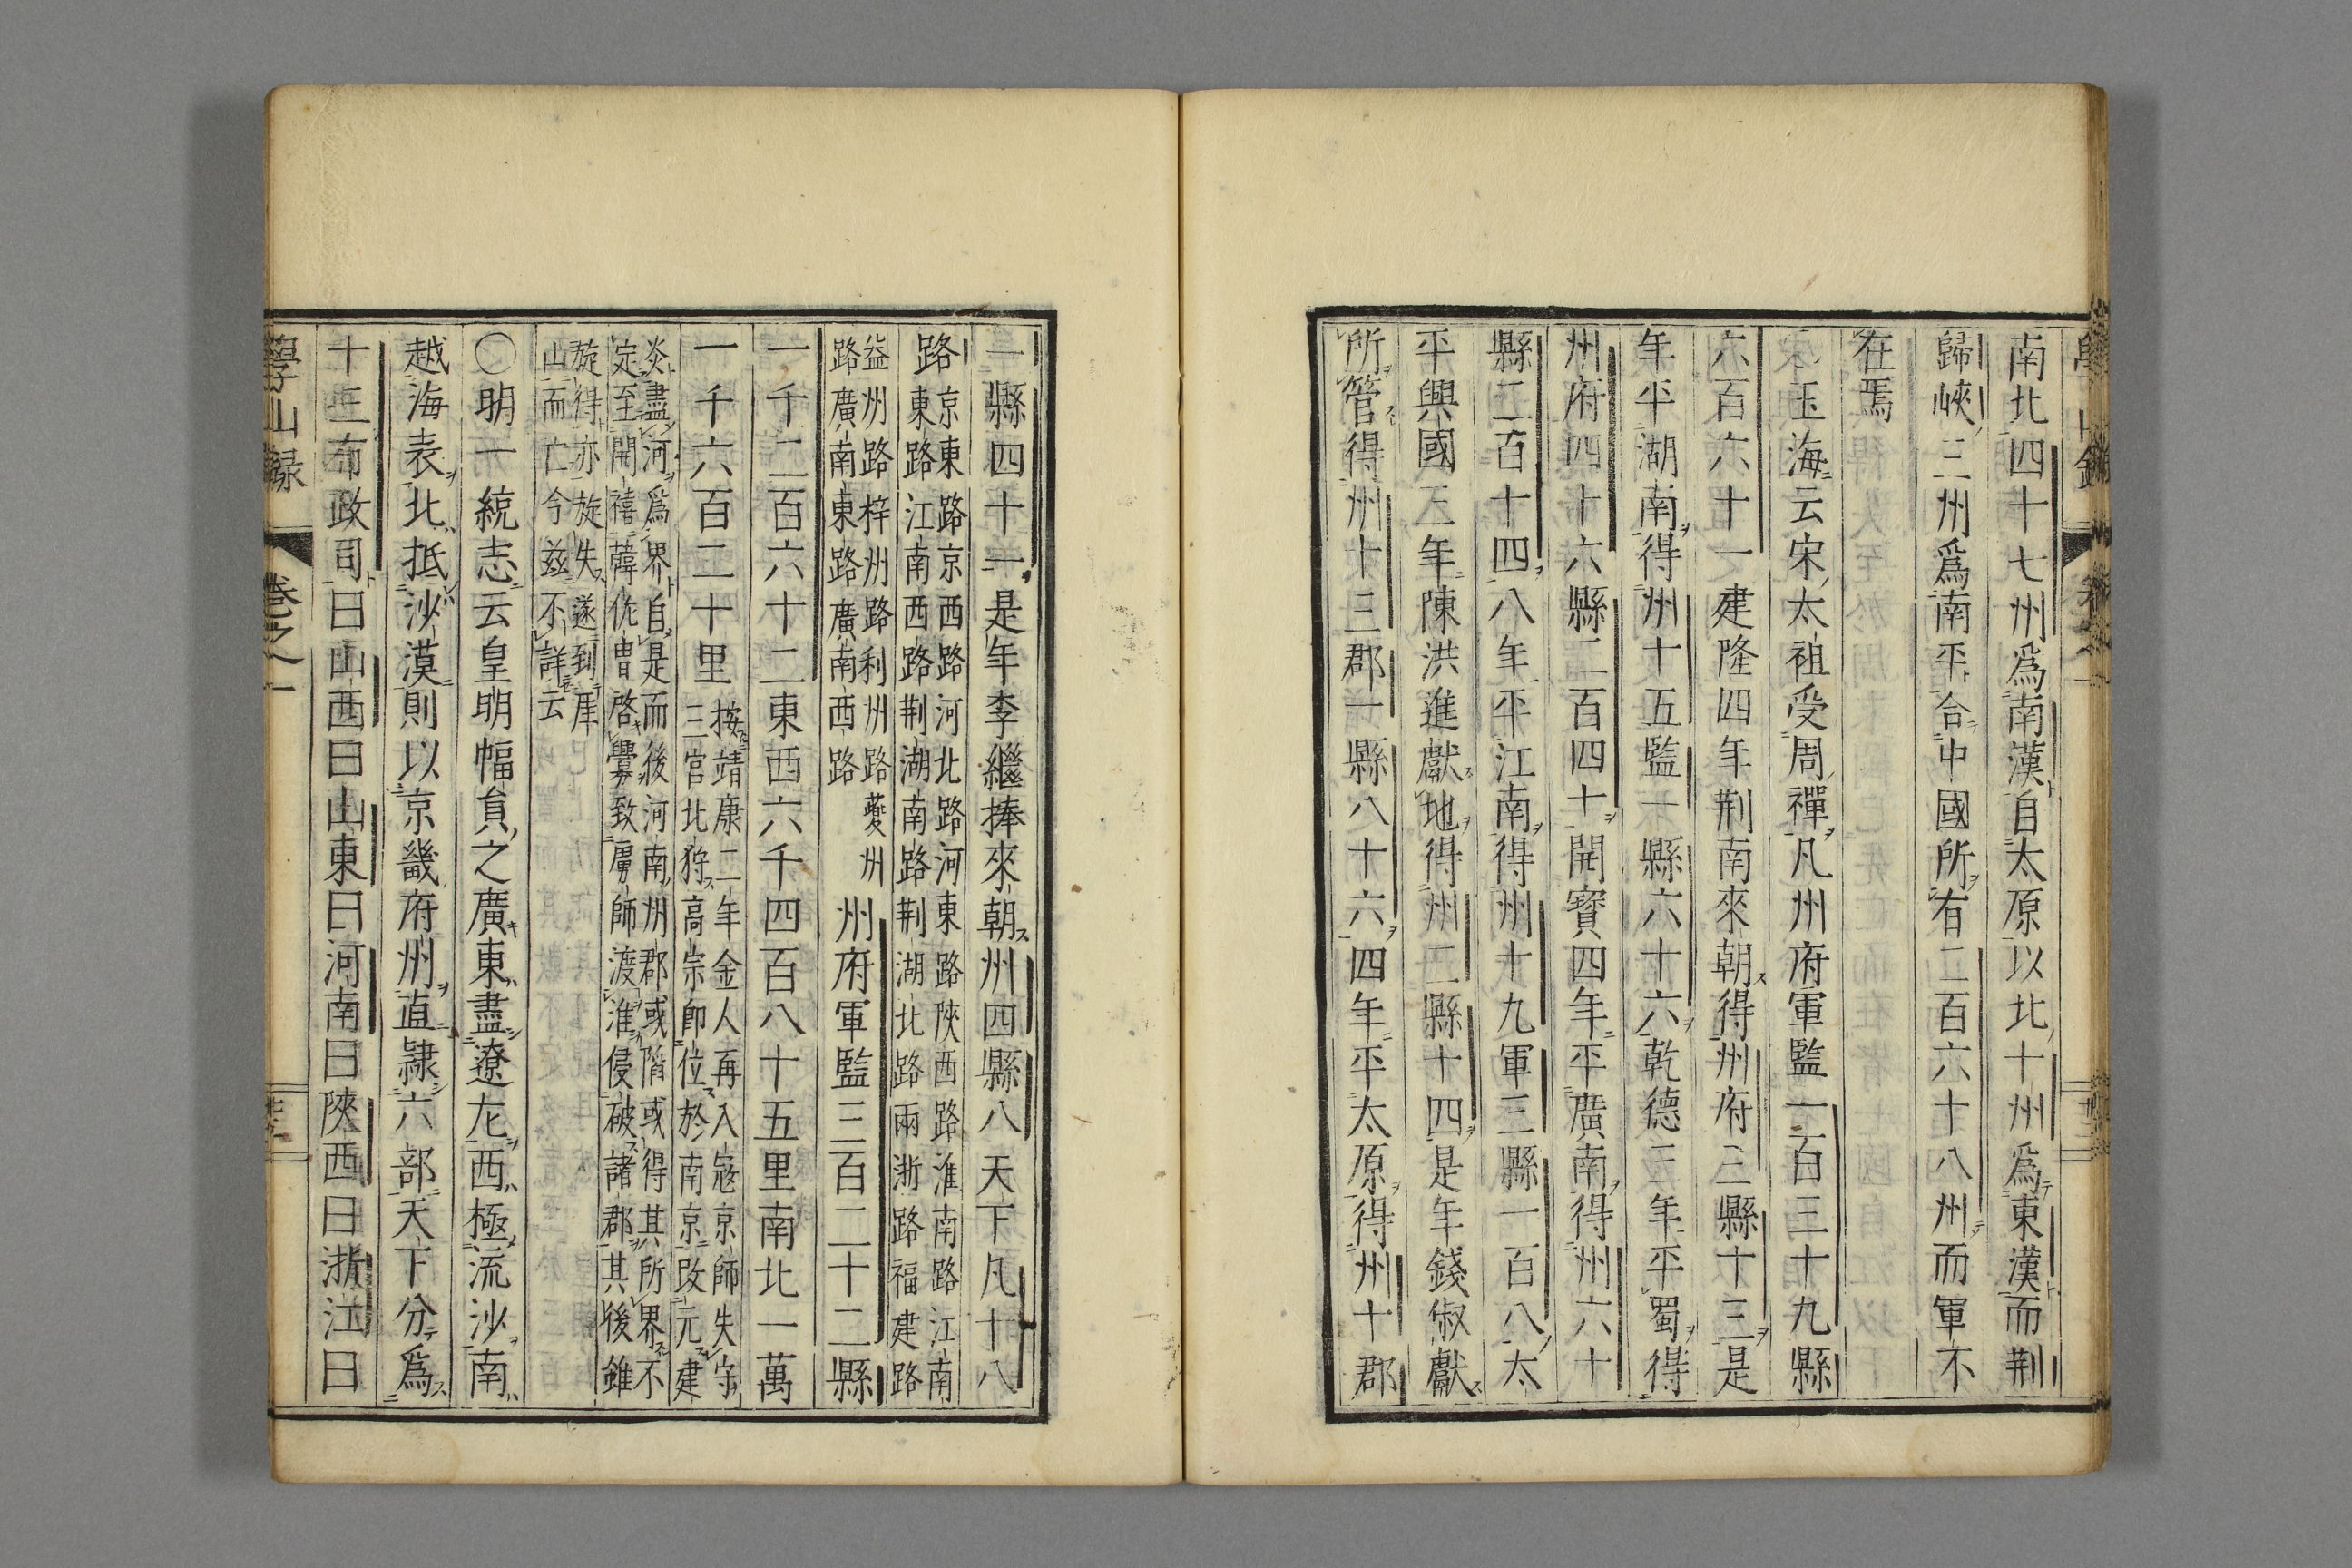 南北四十七州爲南漢自太原以北十州爲東漢而荆
歸峽三州爲南平合中國所有二百六十八州而軍不
在焉
玉海云宋太祖受周禪凡州府軍監一百三十九縣
六百六十一建隆四年荆南來朝得州府三縣十三是
年平湖南得州十五監一縣六十六乾德三年平蜀得
州府四十六縣二百四十開寳四年平廣南得州六十
縣二百十四八年平江南得州十九軍三縣一百八太
平興國三年陳洪進獻地得州二縣十四是年錢俶獻
所管得州十三郡一縣八十六四年平太原得州十郡
一縣四十一是年李繼捧來朝州四縣八天下凡十八
路京東路京西路河北路河東路陜西路淮南路江南
東路江南西路荆湖南路荆湖北路兩浙路福建路
益州路梓州路利州路夔州
路廣南東路廣南西路
州府軍監三百二十二縣
一千二百六十二東西六千四百八十五里南北一萬
一千六百二十里按靖康二年金人再入寇京師失守
三宮北狩高宗卽位於南京改元建
炎盡河爲界自是而後河南州郡或陷或得其所界不
定至開禧韓侂冑啓釁致虜師渡淮侵破諸郡其後雖
旋得亦旋失遂到厓
山而亡今茲不詳云
〇明一統志云皇明幅員之廣東盡遼左西極流沙南
越海表北抵沙漠則以京畿府州直隷六部天下分爲
十三布政司曰山西曰山東曰河南曰陜西曰浙江曰
學山録
卷之一